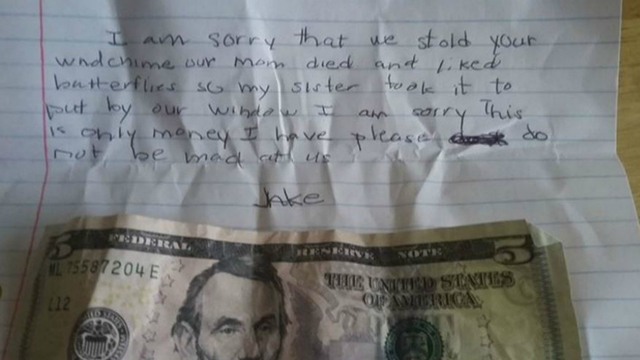 I am sorry that we stold your
windchime our mom died and liked
butterflies so my sister took it to
put by our window I am sorry This
is only money I have please do
not be mad at us
Jake
5 FEDERAL RESERVE NOTE 5
ML 75587204 E
THE UNITED STATES
OF AMERICA
L12